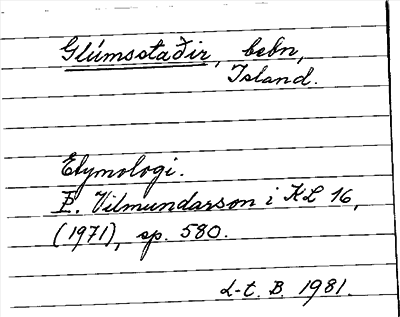 Glúmsstaðir, bebn,
Island.
Etymologi.
Þ. Vilmundarson i KL 16,
(1971), sp. 580.
L-t. B. 1981.